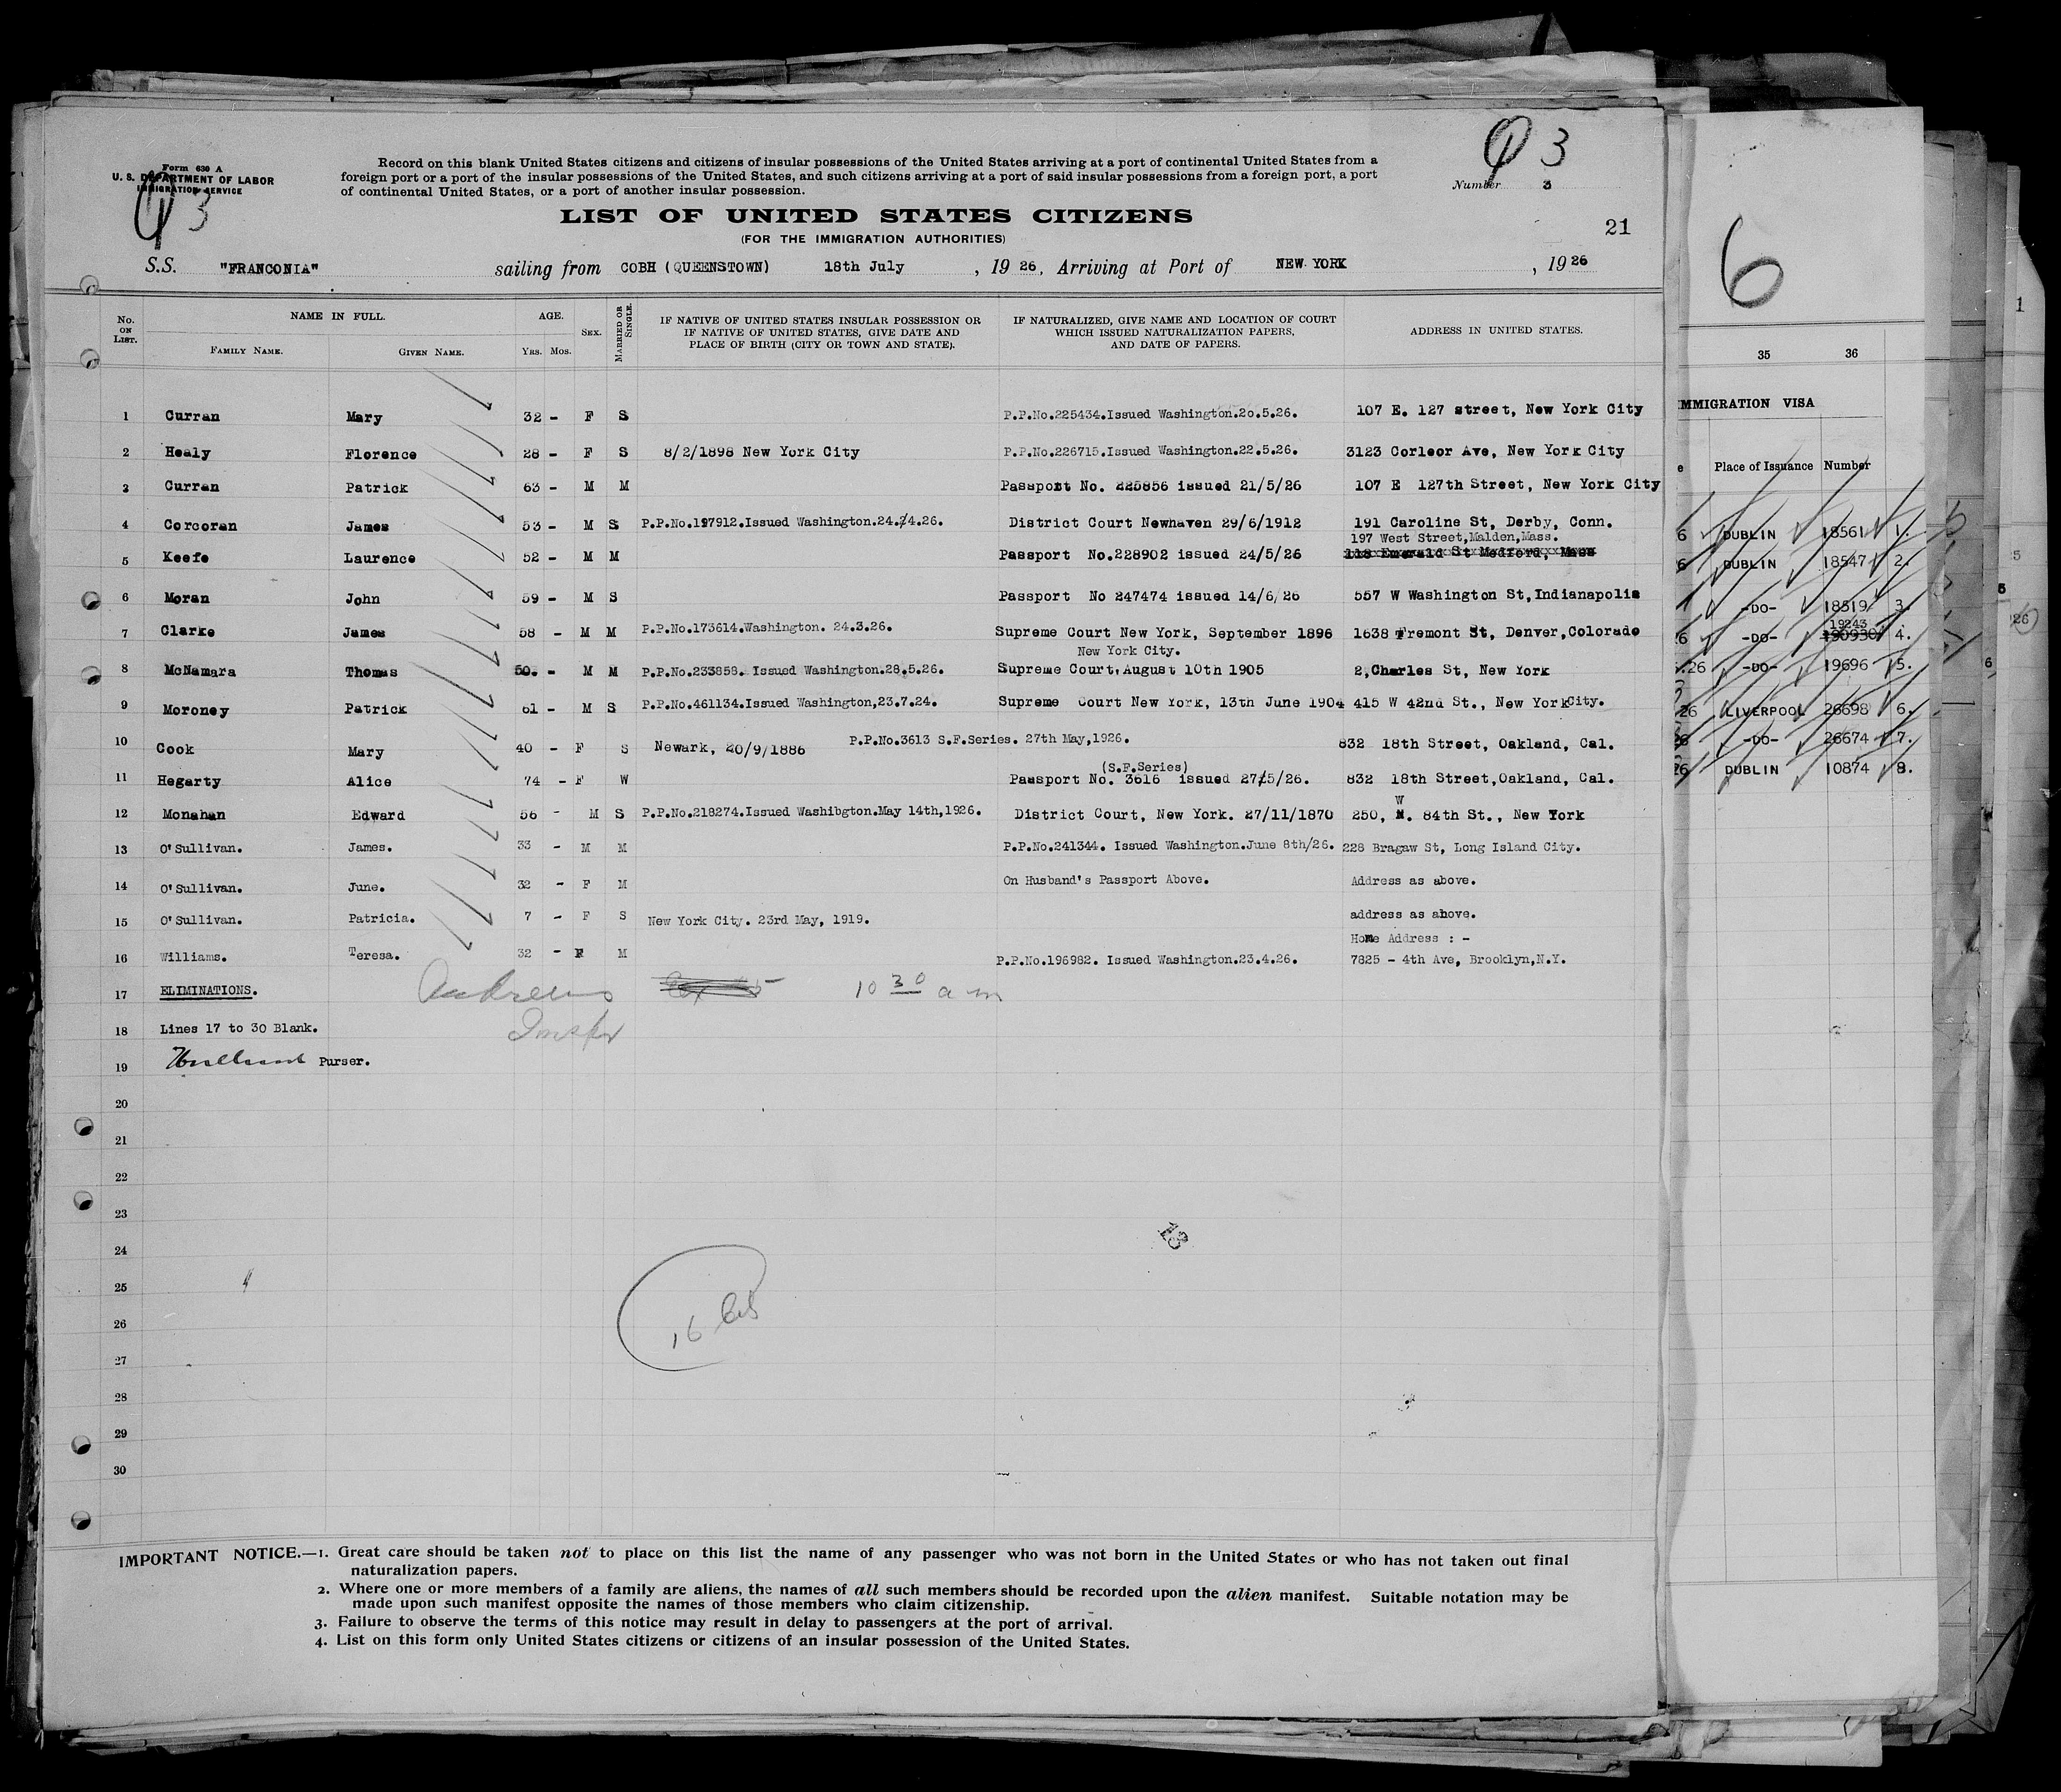 Form 630 A
U. S. DEPARTMENT OF LABOR
IMMIGRATION SERVICE
3
Record on this blank United States citizens and citizens of insular possessions of the United States arriving at a port of continental United States from a
foreign port or a port of the insular possessions of the United States, and such citizens arriving at a port of said insular possessions from a foreign port, a port
of continental United States, or a port of another insular possession.
3
Number 3
LIST OF UNITED STATES CITIZENS
(FOR THE IMMIGRATION AUTHORITIES)
21
S.S. "FRANCONIA" sailing from COBH (QUEENSTOWN) 18th July , 19 26, Arriving at Port of NEW YORK , 19 26
No. ON LIST. NAME IN FULL. AGE. SEX. MARRIED OR SINGLE. IF NATIVE OF UNITED STATES INSULAR POSSESSION OR IF NATIVE OF UNITED STATES, GIVE DATE AND PLACE OF BIRTH (CITY OR TOWN AND STATE). IF NATURALIZED, GIVE NAME AND LOCATION OF COURT WHICH ISSUED NATURALIZATION PAPERS, AND DATE OF PAPERS. ADDRESS IN UNITED STATES.
FAMILY NAME. GIVEN NAME. Yrs. Mos.
1 Curran Mary 32 - F S P.P.No.225434.Issued Washington.20.5.26. 107 E. 127 street, New York City
2 Healy Florence 28 - F S 8/2/1898 New York City P.P.No.226715.Issued Washington.22.5.26. 3123 Corleor Ave, New York City
3 Curran Patrick 63 - M M Passport No. 225856 issued 21/5/26 107 E 127th Street, New York City
4 Corcoran James 53 - M S P.P.No.197912.Issued Washington.24.4.26. District Court Newhaven 29/6/1912 191 Caroline St, Derby, Conn.
197 West Street,Malden,Mass.
5 Keefe Laurence 52 - M M Passport No.228902 issued 24/5/26 118 Emerald St Medford, Mass
6 Moran John 59 - M S Passport No 247474 issued 14/6/26 557 W Washington St,Indianapolis
7 Clarke James 58 - M M P.P.No.173614.Washington. 24.3.26. Supreme Court New York, September 1896 1638 Tremont St, Denver,Colorado
New York City.
8 McNamara Thomas 50. - M M P.P.No.233858. Issued Washington.28.5.26. Supreme Court.August 10th 1905 2,Charles St, New York
9 Moroney Patrick 61 - M S P.P.No.461134.Issued Washington,23.7.24. Supreme Court New York, 13th June 1904 415 W 42nd St., New York City.
10 Cook Mary 40 - F S Newark, 20/9/1886 P.P.No.3613 S.F.Series. 27th May,1926. 832 18th Street, Oakland, Cal.
(S.F.Series)
11 Hegarty Alice 74 - F W Passport No. 3616 issued 27/5/26. 832 18th Street,Oakland, Cal.
W
12 Monahan Edward 56 - M S P.P.No.218274.Issued Washibgton.May 14th,1926. District Court, New York. 27/11/1870 250, N. 84th St., New York
13 O'Sullivan. James. 33 - M M P.P.No.241344. Issued Washington.June 8th/26. 228 Bragaw St, Long Island City.
14 O'Sullivan. June. 32 - F M On Husband's Passport Above. Address as above.
15 O'Sullivan. Patricia. 7 - F S New York City. 23rd May, 1919. address as above.
Home Address : -
16 Williams. Teresa. 32 - F M P.P.No.196982. Issued Washington.23.4.26. 7825 - 4th Ave, Brooklyn,N.Y.
17 ELIMINATIONS. Andrews 10 30 a m
18 Lines 17 to 30 Blank. Inspr
19 Purser.
20
21
22
23
13
24
25
26
16
27
28
29
30
IMPORTANT NOTICE.—1. Great care should be taken not to place on this list the name of any passenger who was not born in the United States or who has not taken out final
naturalization papers.
2. Where one or more members of a family are aliens, the names of all such members should be recorded upon the alien manifest. Suitable notation may be
made upon such manifest opposite the names of those members who claim citizenship.
3. Failure to observe the terms of this notice may result in delay to passengers at the port of arrival.
4. List on this form only United States citizens or citizens of an insular possession of the United States.
6
35 36
IMMIGRATION VISA
Place of Issuance Number
6 DUBLIN 18561 1.
6 DUBLIN 18547 2.
-DO- 18519 3.
19243
6 -DO- 190930 4.
.26 -DO- 19696 5.
26 LIVERPOOL 26698 6.
26 -DO- 26674 7.
26 DUBLIN 10874 8.
1
5
5
26
6